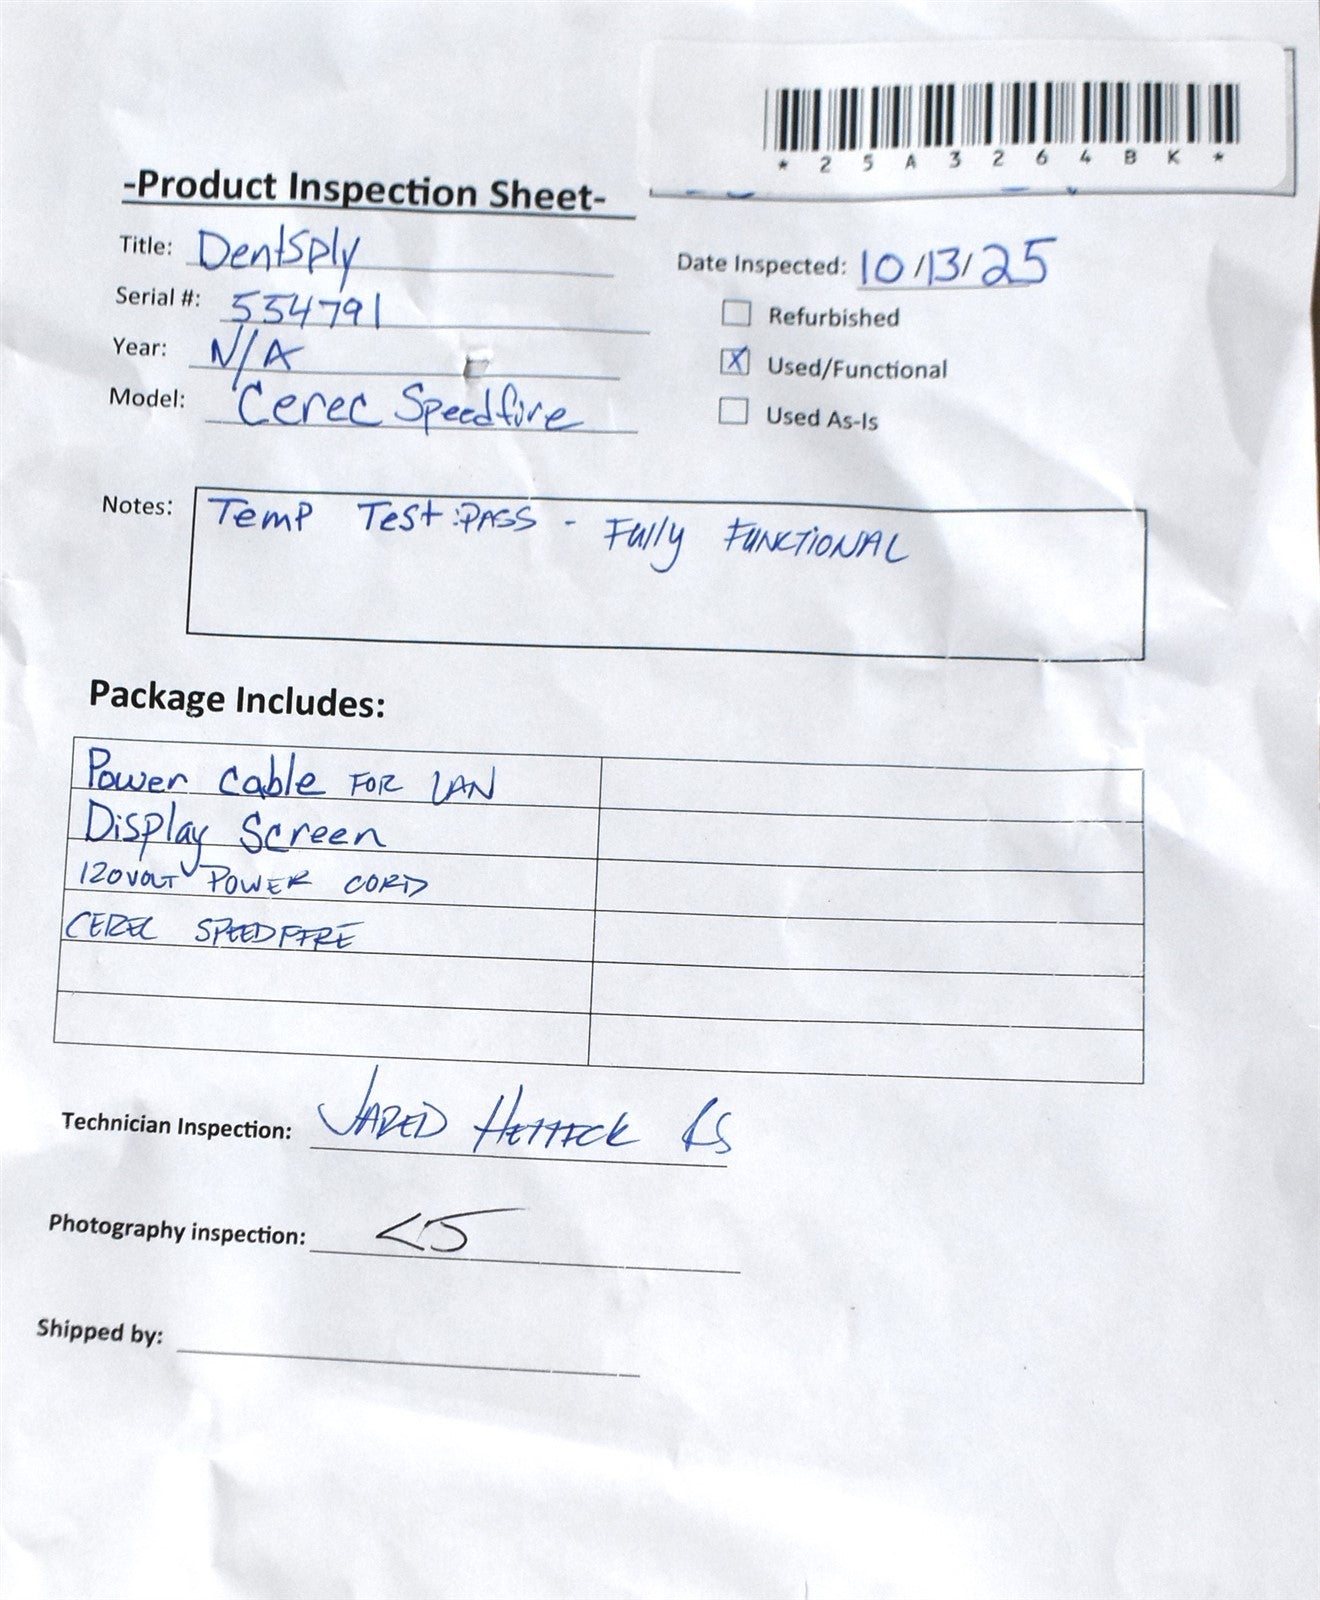 * 2 5 A 3 2 6 4 B K *
-Product Inspection Sheet-
Title: Dentsply
Date Inspected: 10/13/25
Serial #: 554791
Refurbished
Year: N/A
X Used/Functional
Model: Cerec Speedfire
Used As-Is
Notes: Temp Test: PASS - Fully FUNCTIONAL
Package Includes:
Power Cable FOR LAN
Display Screen
120VOLT POWER CORD
CEREC SPEEDFIRE
Technician Inspection: JARED
Photography inspection:
Shipped by: